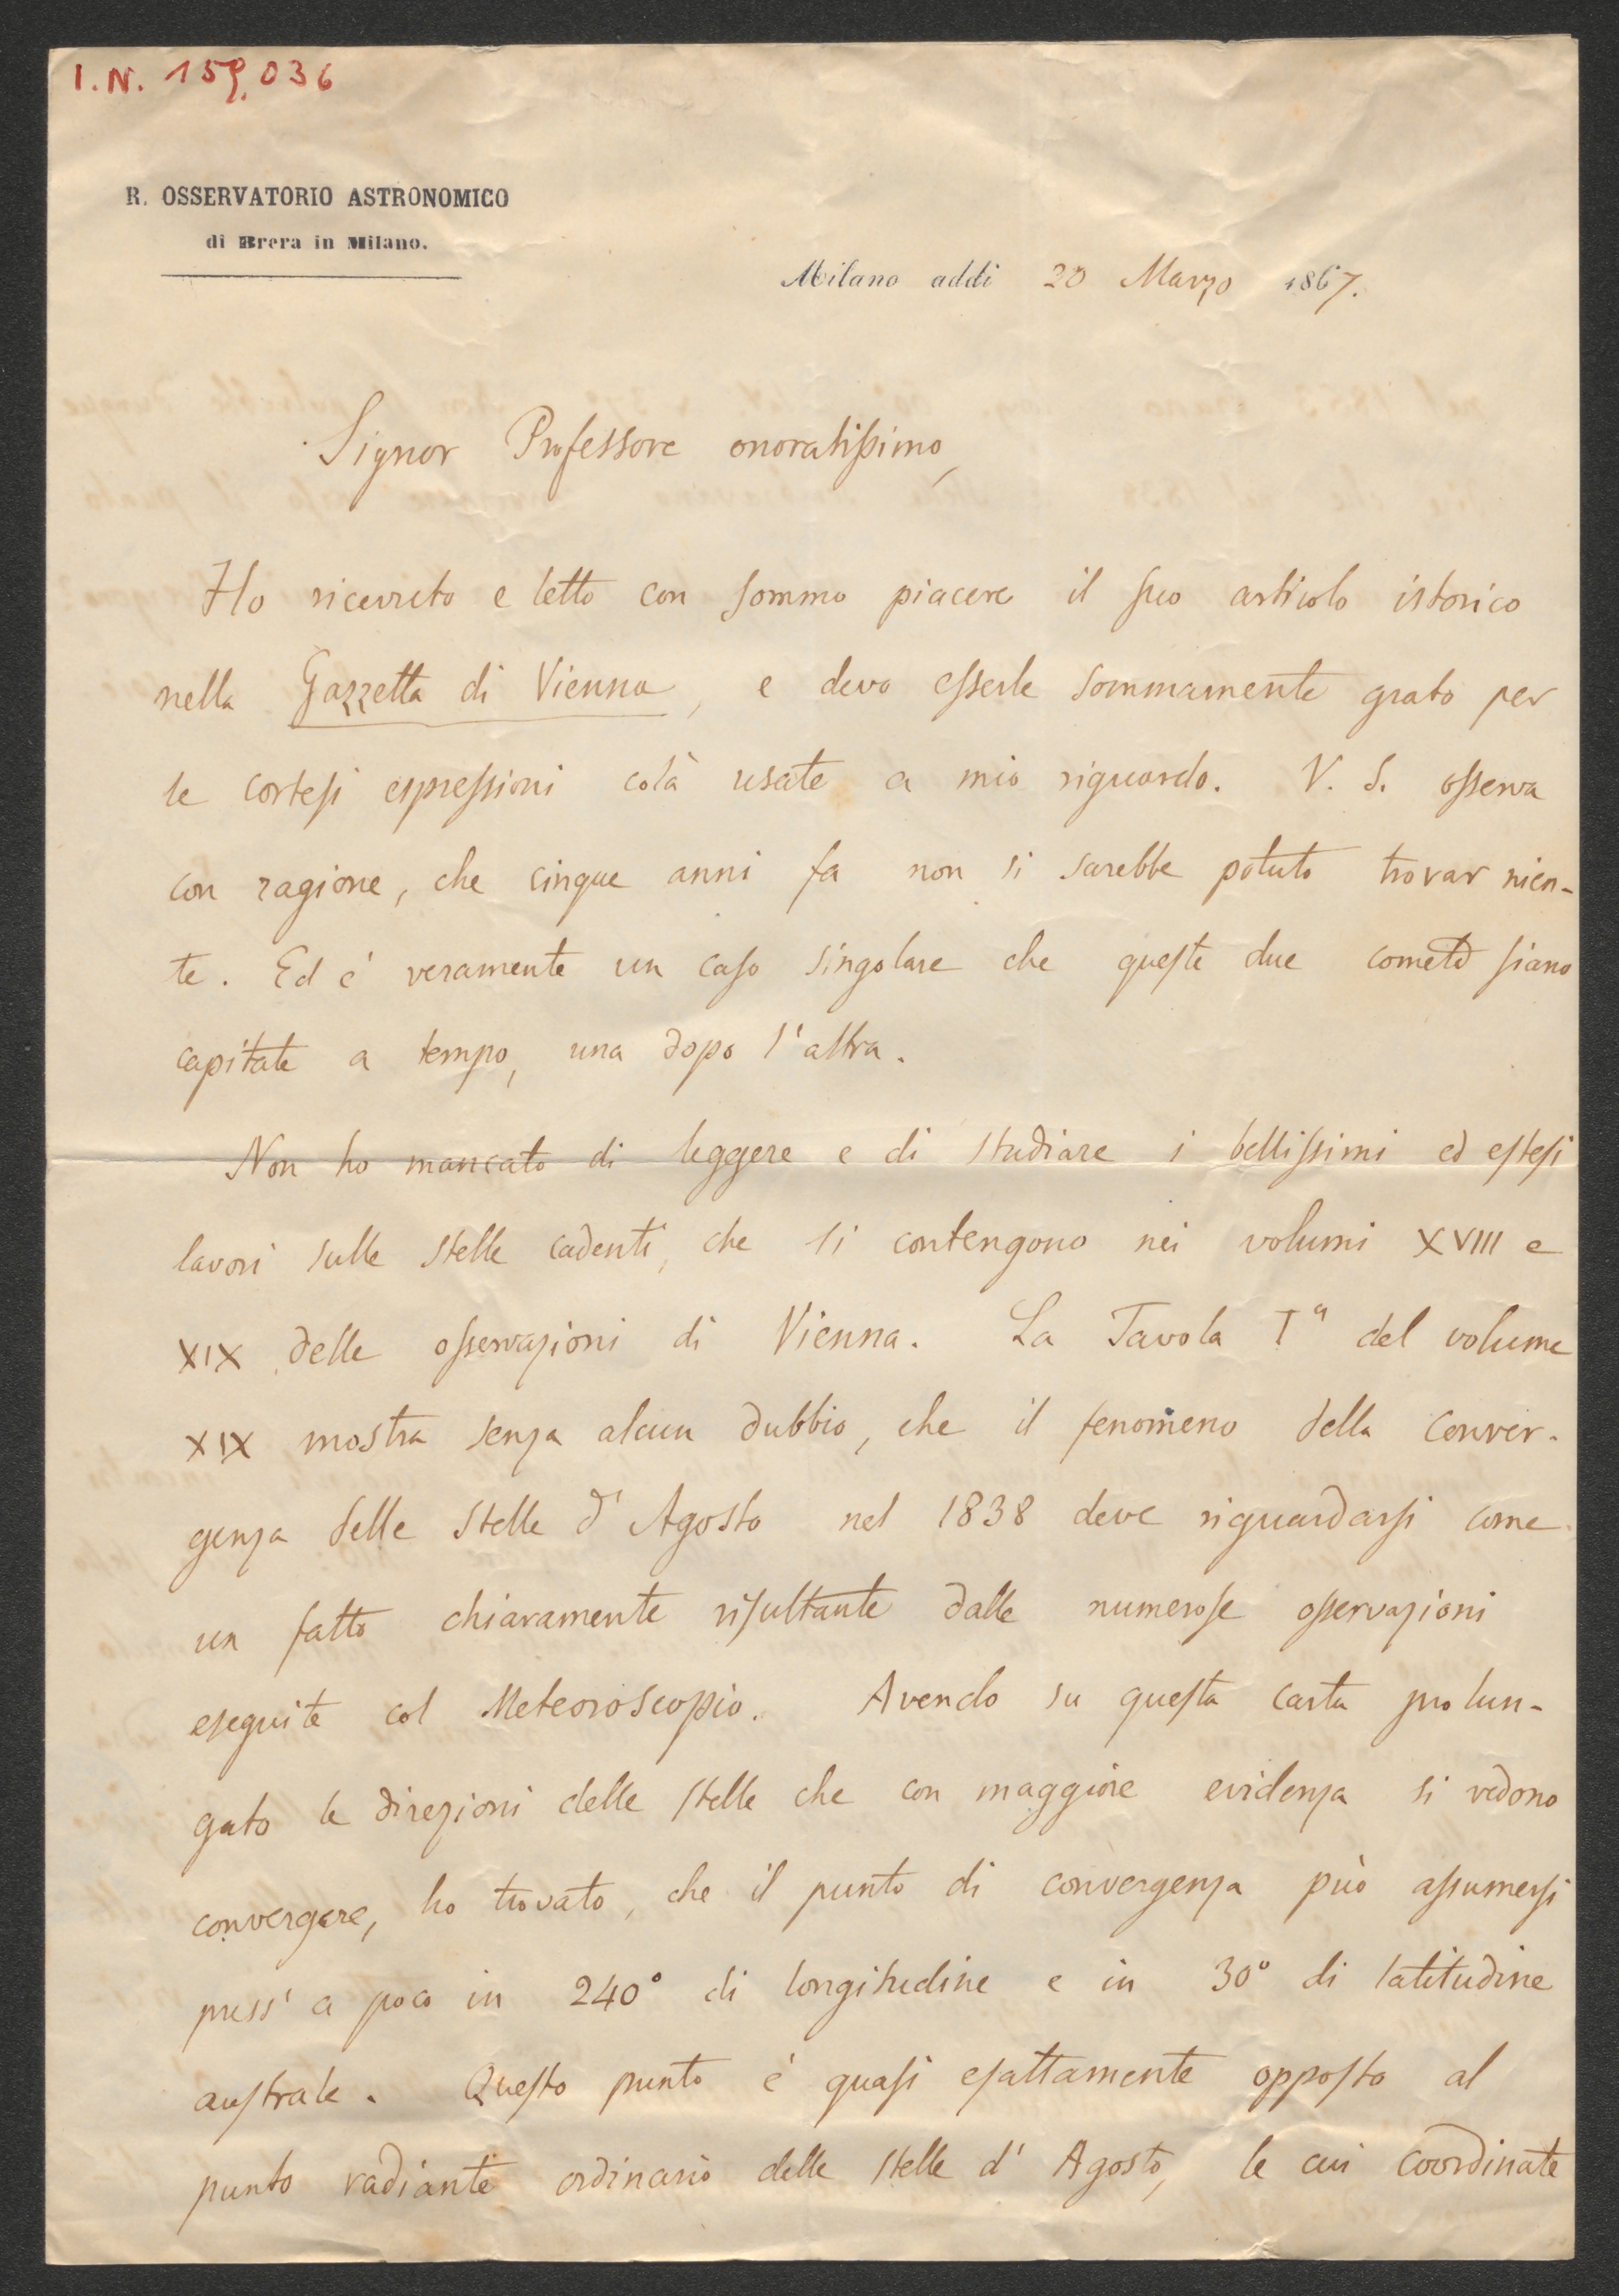 I.N. 159.036
R. OSSERVATORIO ASTRONOMICO
di Brera in Milano.
Milano addi 20 Marzo 1867.
Signor Professore onoratissimo,
Ho ricevuto e letto con sommo piacere il suo articolo istorico
nella Gazzetta di Vienna, e devo esserle sommamente grato per
le cortesi espressioni colà usate a mio riguardo. V. S. osserva
con ragione, che cinque anni fa non si sarebbe potuto trovar nien-
te. Ed è veramente un caso singolare che queste due comete siano
capitate a tempo, una dopo l'altra.
Non ho mancato di leggere e di studiare i bellissimi ed estesi
lavori sulle stelle cadenti, che si contengono nei volumi XVIII e
XIX delle osservazioni di Vienna. La Tavola Iª del volume
XIX mostra senza alcun dubbio, che il fenomeno della conver-
genza delle stelle d'Agosto nel 1838 deve riguardarsi come
un fatto chiaramente risultante dalle numerose osservazioni
eseguite col Meteoroscopio. Avendo su questa carta prolun-
gato le direzioni delle stelle che con maggiore evidenza si vedono
convergere, ho trovato, che il punto di convergenza può assumersi
press' a poco in 240° di longitudine e in 30° di latitudine
australe. Questo punto è quasi esattamente opposto al
punto radiante ordinario delle stelle d' Agosto, le cui coordinate